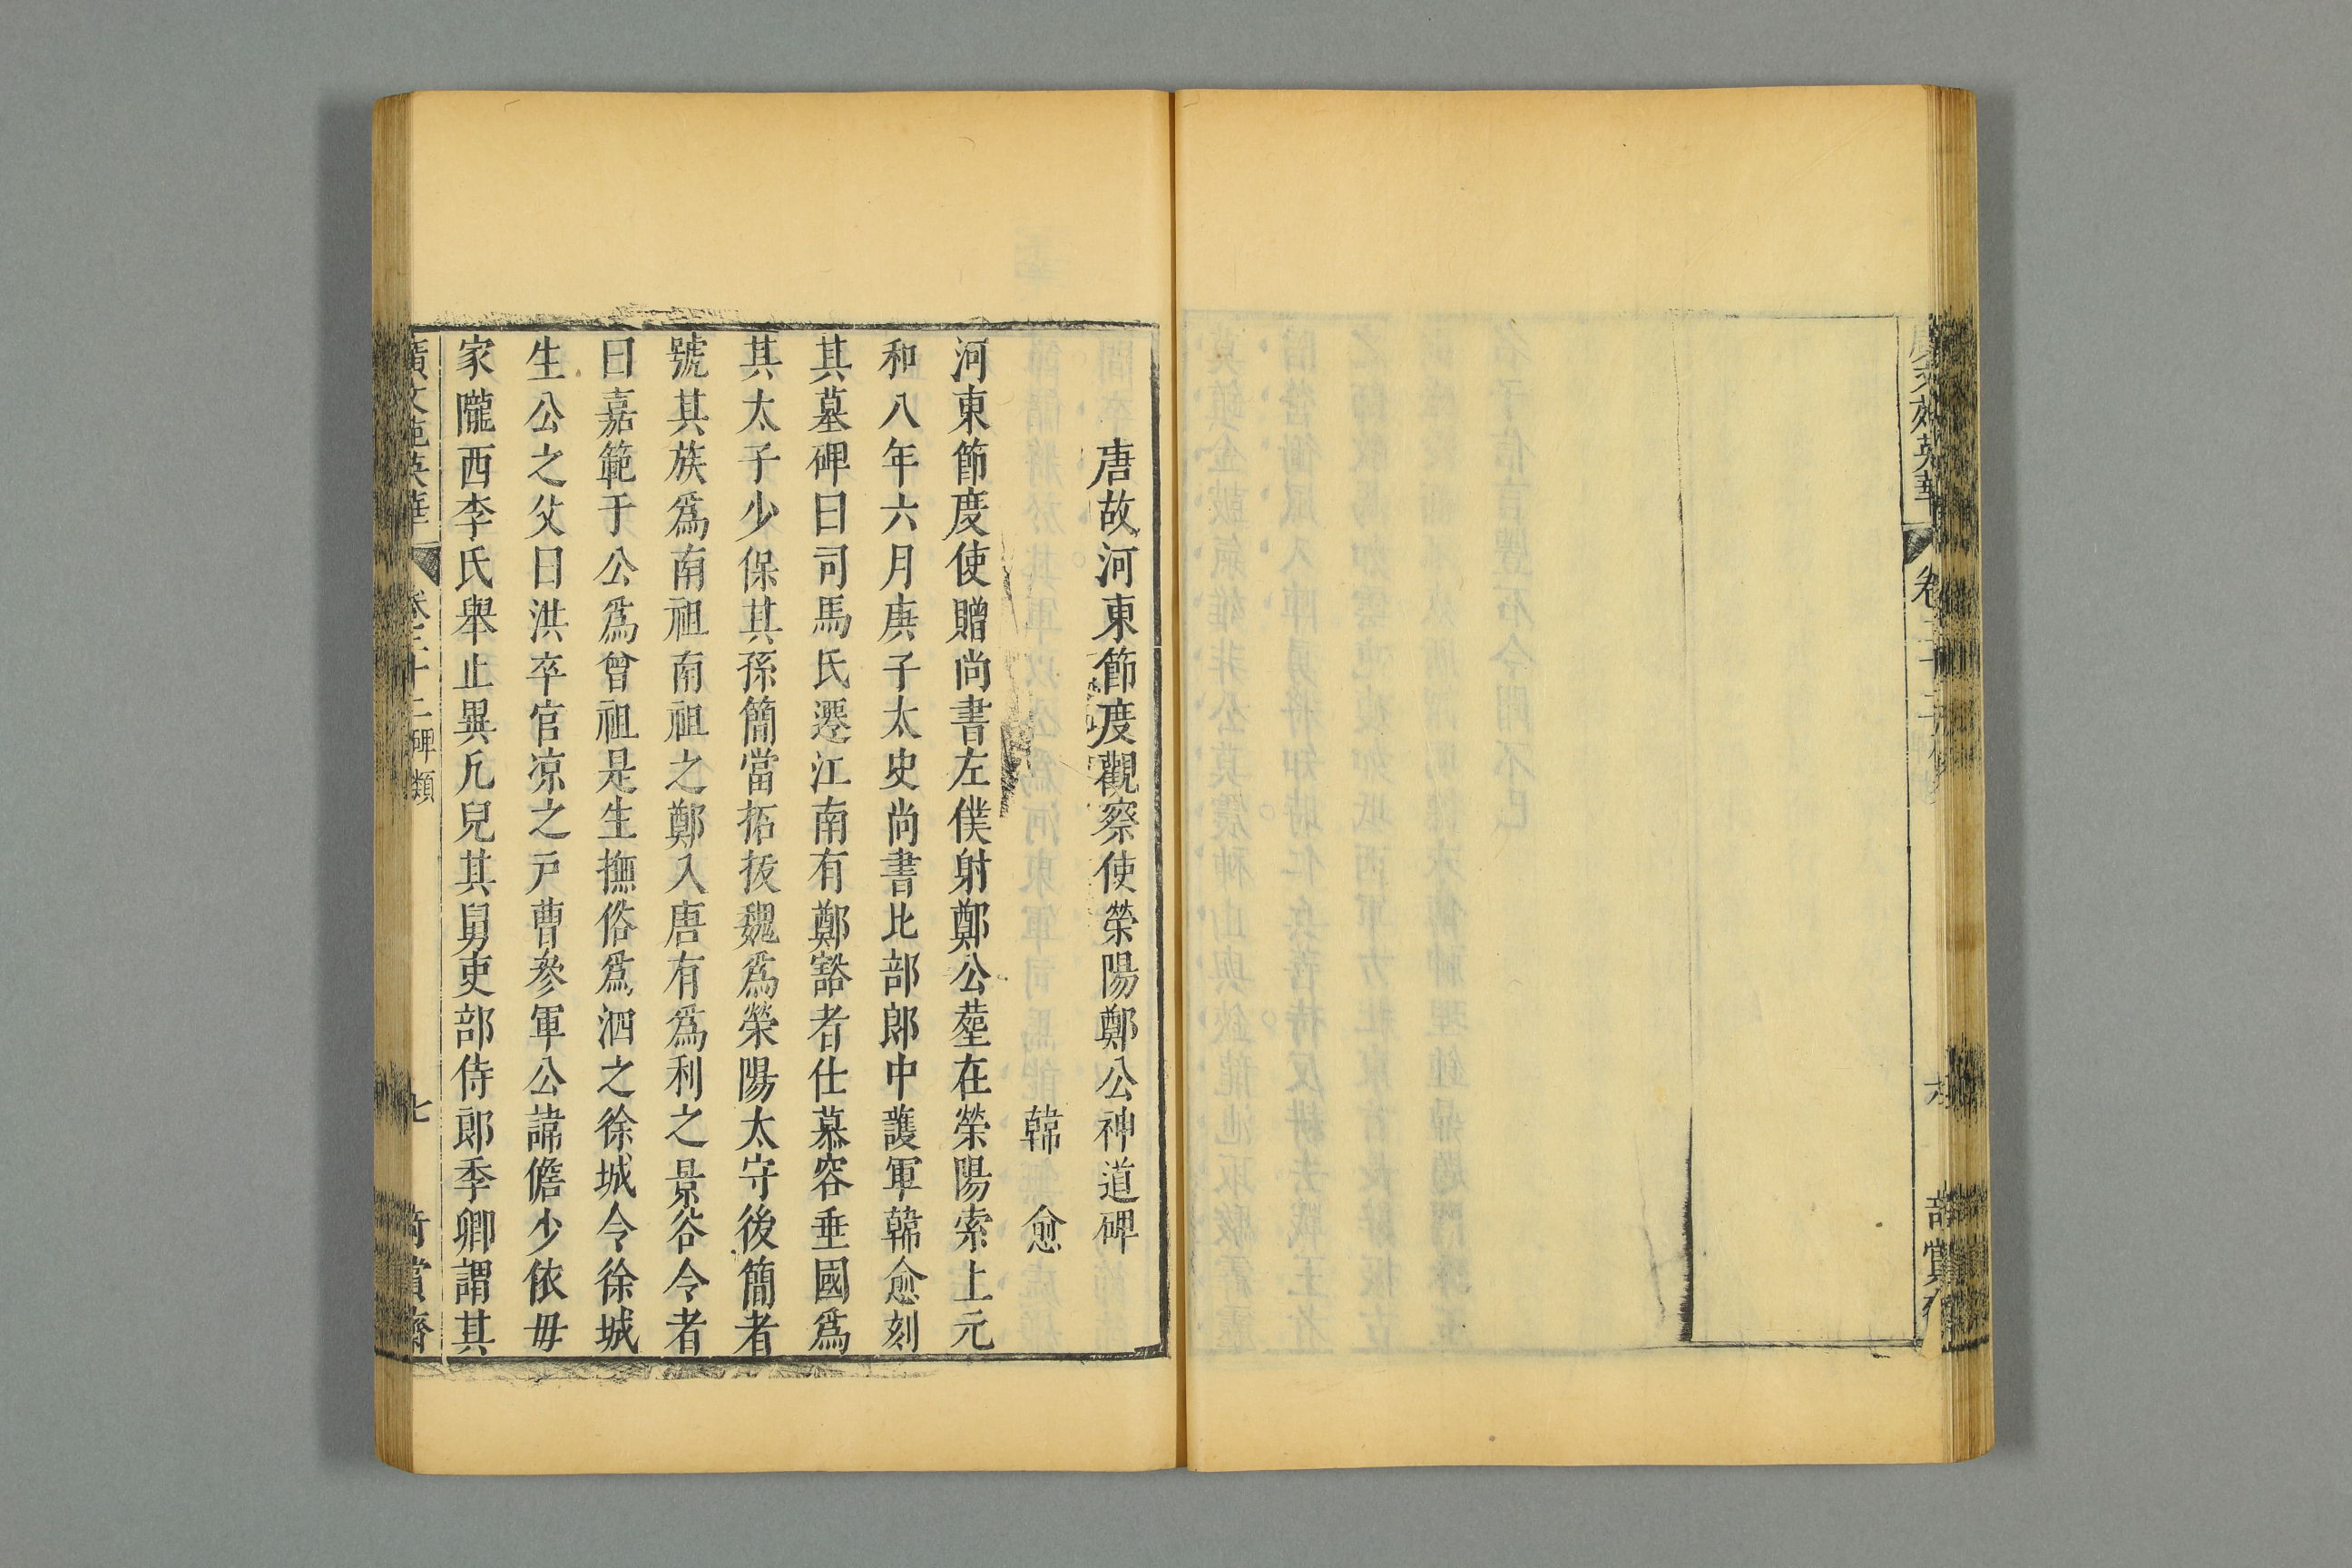 唐故河東節度觀察使滎陽鄭公神道碑
韓愈
河東節度使贈尚書左僕射鄭公塟在滎陽索上元
和八年六月庚子太史尚書比部郎中護軍韓愈刻
其墓碑曰司馬氏遷江南有鄭豁者仕慕容垂國爲
其太子少保其孫簡當拓拔魏爲滎陽太守後簡者
號其族爲南祖南祖之鄭入唐有爲利之景谷令者
曰嘉範于公爲曾祖是生撫俗爲泗之徐城令徐城
生公之父曰洪卒官凉之戶曹參軍公諱儋少依毋
家隴西李氏舉止異凡兒其舅吏部侍郎季卿謂其
廣文苑英華
卷二十二碑類
七